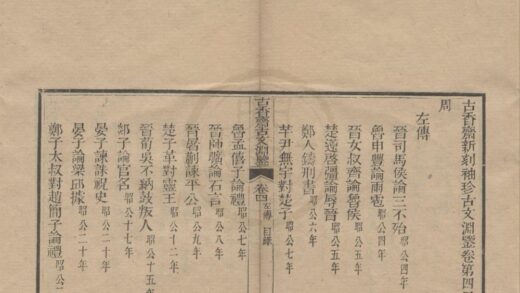 古香齋新刻袖珍古文淵鑒卷第四
周
左傳
晉司馬侯論三不殆 昭公四年
魯申豐論雨雹 昭公四年
晉女叔齊論魯侯 昭公五年
楚薳啓彊論辱晉 昭公五年
鄭人鑄刑書 昭公六年
芊尹無宇對楚子 昭公七年
古香齋古文淵鑒 卷四 左傳 目錄
魯孟僖子論禮 昭公七年
晉師曠論石言 昭公八年
晉屠蒯諫平公 昭公九年
楚子革對靈王 昭公十二年
晉荀吳不納鼓叛人 昭公十五年
郯子論官名 昭公十七年
晏子諫誅祝史 昭公二十年
晏子論梁邱據 昭公二十年
鄭子太叔對趙簡子論禮 昭公二